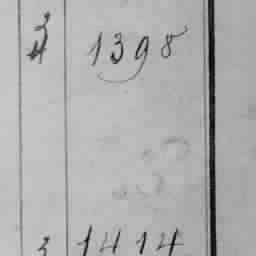 1398
3 1414